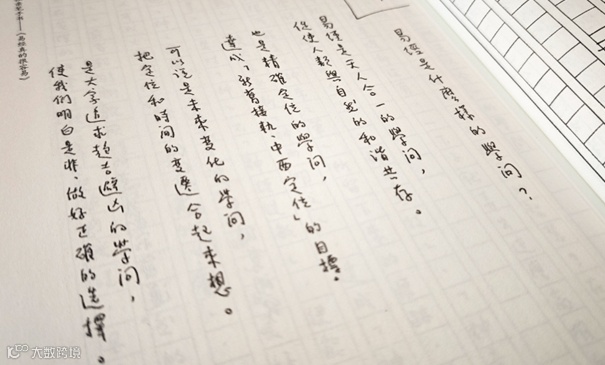 易經是什麼樣的學問？
易經是天人合一的學問，
促使人類與自然的和諧共存。
也是精準定位的學問，
達成「新舊接軌、中西定位」的目標。
可以說是未來變化的學問，
把定位和時間的變遷合起來想。
是大家追求趨吉避凶的學問，
使我們明白是非，做好正確的選擇。
《易經真的很容易》
大数跨境